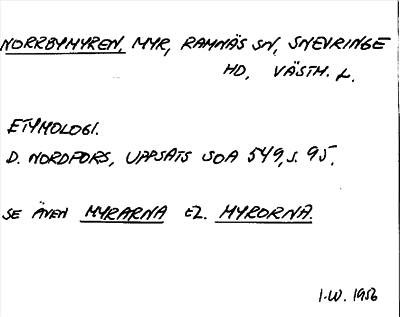 NORRBYMYREN, MYR, RAMNÄS SN, SNEVRINGE
HD, VÄSTM. L.
ETYMOLOGI.
D. NORDFORS, UPPSATS SOA 549, S. 95.
SE ÄVEN MYRARNA EL. MYRORNA.
I.W. 1956